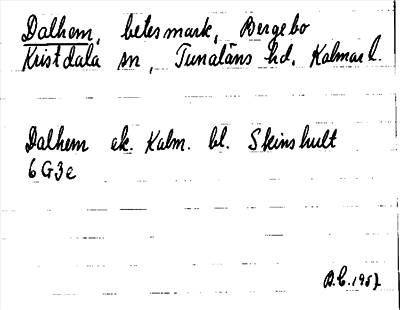 Dalhem, betesmark, Bergebo
Kristdala sn, Tunaläns hd, Kalmar l.
Dalhem ek. Kalm. bl. Skinshult
6G3e
B.C. 1957